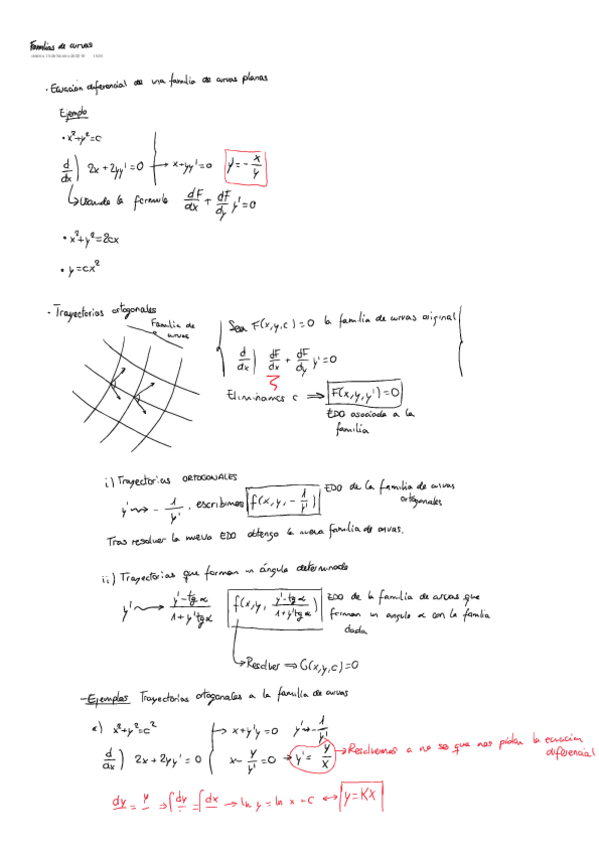 Familias de curvas
· Ecuación diferencial de una familia de curvas planas
Ejemplo
• x²+y²=c
d/dx ) 2x+2yy'=0 → x+yy'=0 y'=-x/y
↳ Usando la formula dF/dx + dF/dy y'=0
• x²+y²=2cx
• y=cx²
· Trayectorias ortogonales
Familia de curvas
Sea F(x,y,c)=0 la familia de curvas original
d/dx ) dF/dx + dF/dy y'=0
Eliminamos c ⇒ F(x,y,y')=0
EDO asociada a la
familia
i) Trayectorias ORTOGONALES
y' ⇝ -1/y' . escribimos f(x,y,-1/y') EDO de la familia de curvas
ortogonales
Tras resolver la nueva EDO obtengo la nueva familia de curvas.
ii) Trayectorias que forman un ángulo determinado
y' ⇝ y'-tgα/1+y'tgα f(x,y, y'-tgα/1+y'tgα) EDO de la familia de curvas que
forman un angulo α con la familia
dada
↳ Resolver ⇒ G(x,y,c)=0
- Ejemplos Trayectorias ortogonales a la familia de curvas
a) x²+y²=c² → x+y'y=0 y' → -1/y'
d/dx ) 2x+2yy'=0 x-y/y'=0 → y'=y/x → Resolvemos a no se que nos pidan la ecuacion
diferencial
dy = y ⇒ ∫dy = ∫dx → ln y = ln x + C ↔ y=Kx